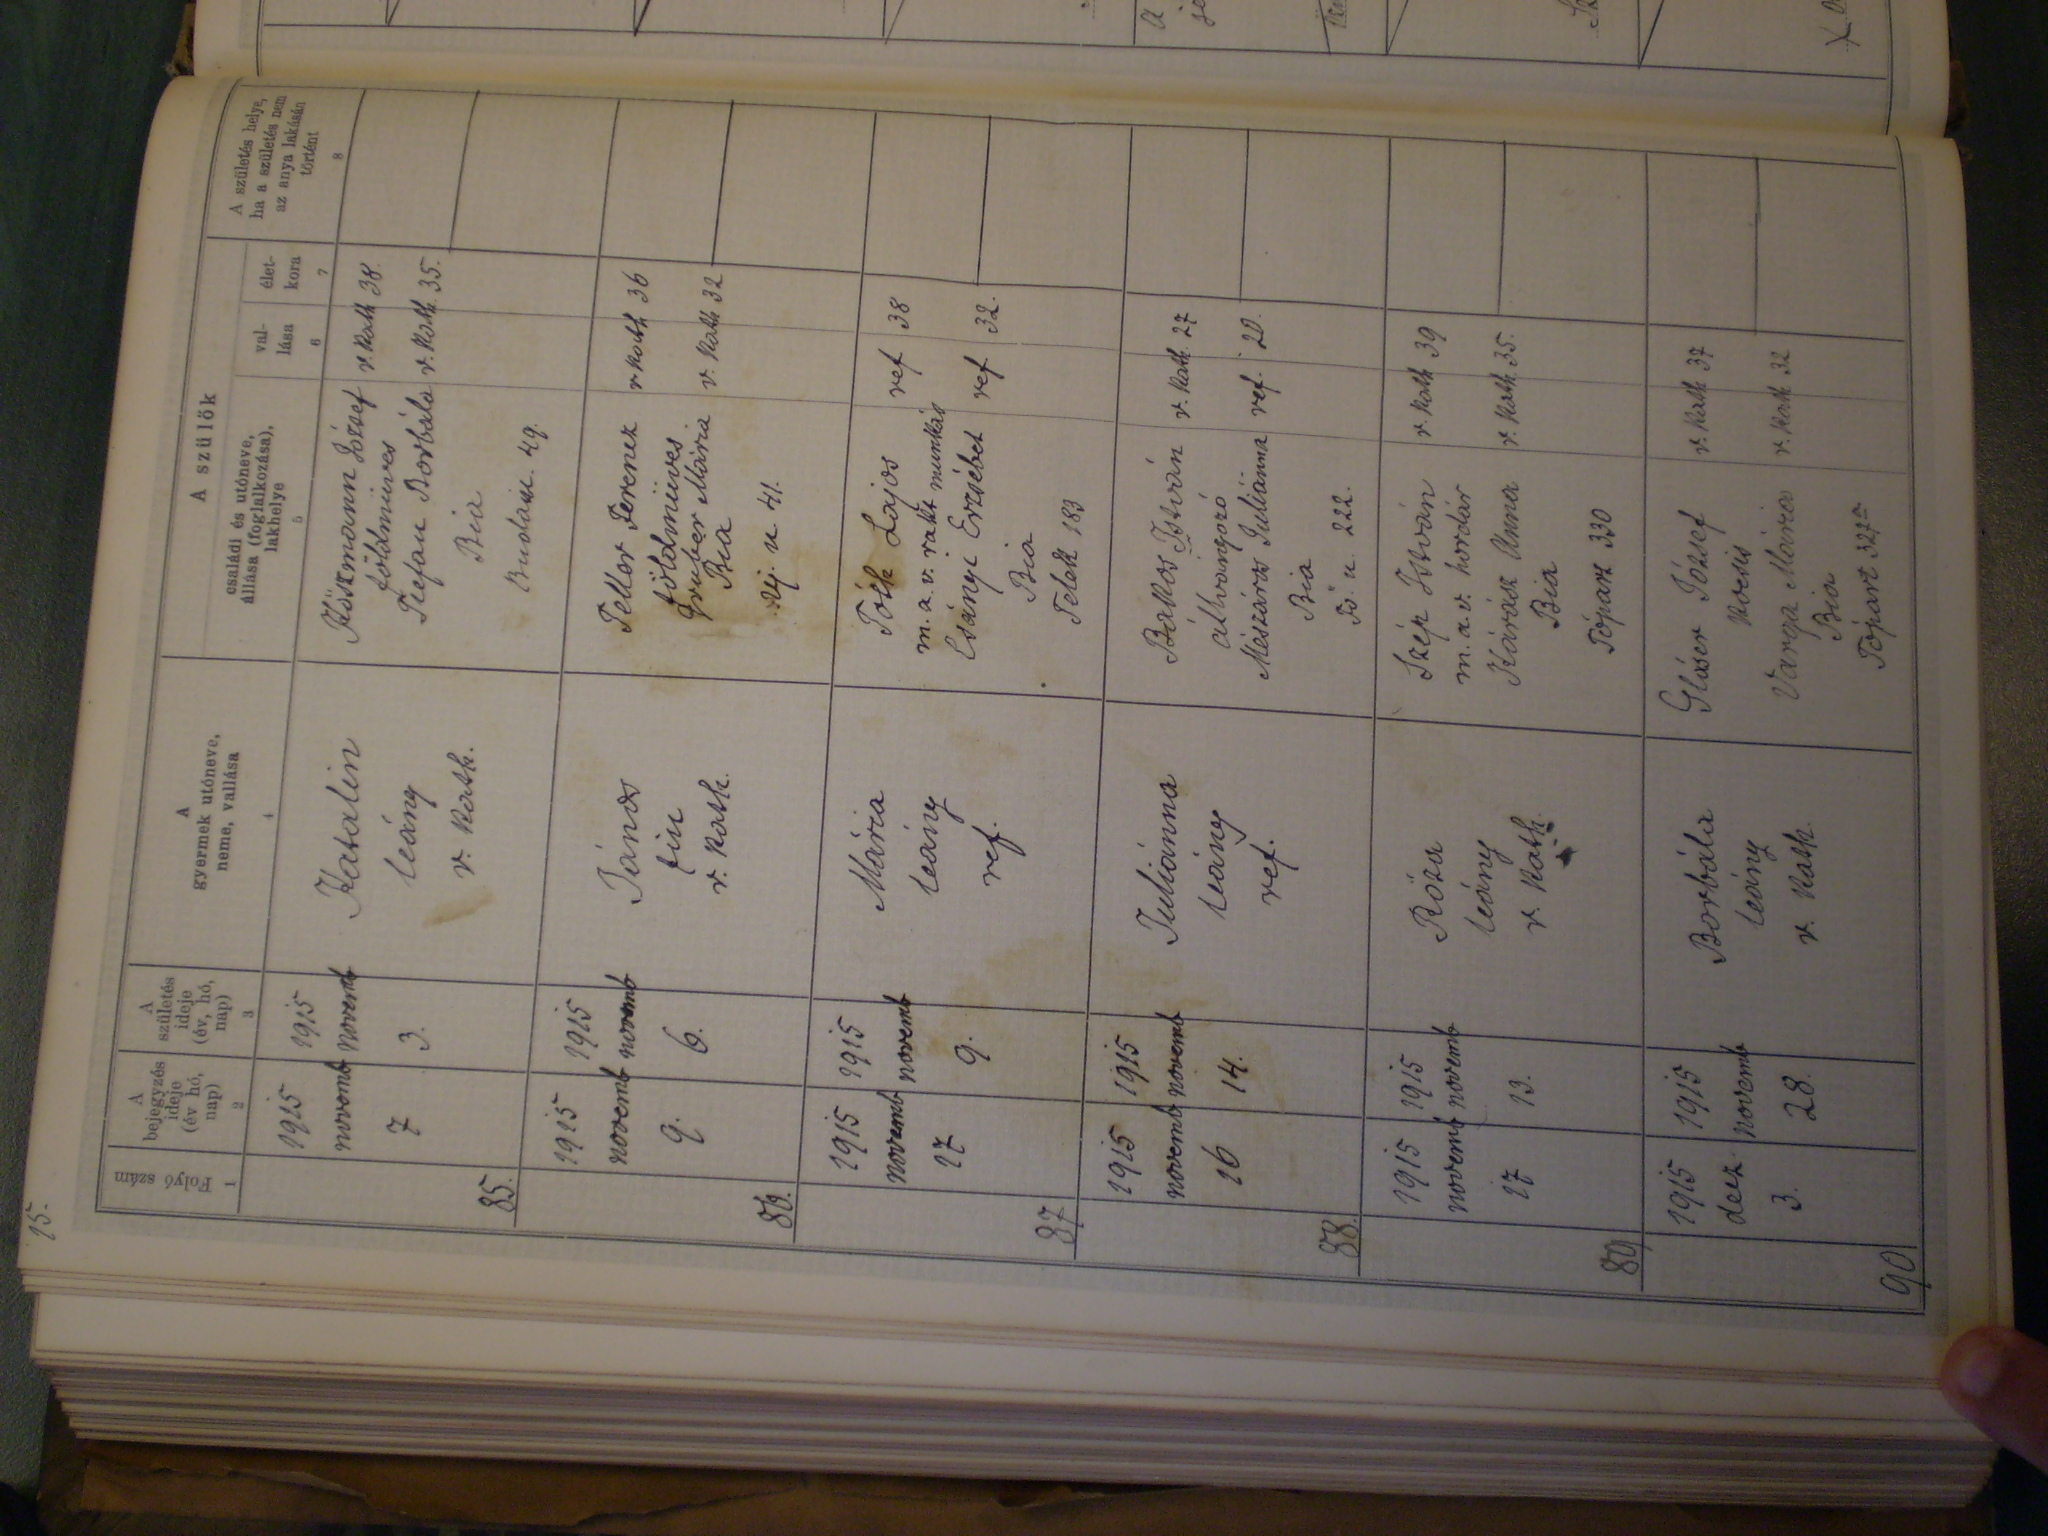 15.
Folyó szám
A bejegyzés ideje (év hó, nap)
A születés ideje (év, hó, nap)
A gyermek utóneve, neme, vallása
A szülők
családi és utóneve, állása (foglalkozása), lakhelye
vallása
életkora
A születés helye, ha a születés nem az anya lakásán történt
1 2 3 4 5 6 7 8
85.
1915 novemb 7
1915 novemb 3.
Katalin
leány
v. kath.
József v. kath 38.
földmives
Borbála v. kath. 35.
Bia
49.
86.
1915 novemb 9.
1915 novemb 6.
János
fiu
v. kath.
Feller Ferenc v kath 36
földmüves
Gruber Mária v. kath 32
Bia
Uj. u 41.
87
1915 novemb 17
1915 novemb 9.
Mária
leány
ref.
Tóth Lajos ref 38
m. a. v. rakt munkás
Csányi Erzsébet ref 32.
Bia
Telek 183
88.
1915 novemb 16
1915 novemb 14.
Juliánna
leány
ref.
Bakos István v. kath. 27
Mészáros Juliánna ref. 20.
Bia
Fő u. 222.
89
1915 novemb 17
1915 novemb 13.
Róza
leány
v. kath.
Szép István v. kath 39
m. a. v. hordár
Kárász Anna v. kath. 35.
Bia
Tópart 330
90
1915 decz. 3.
1915 novemb 28.
Borbála
leány
v. kath.
Gláser József v. kath 37
kocsis
Varga Mária v. kath 32
Bia
Tópart 327